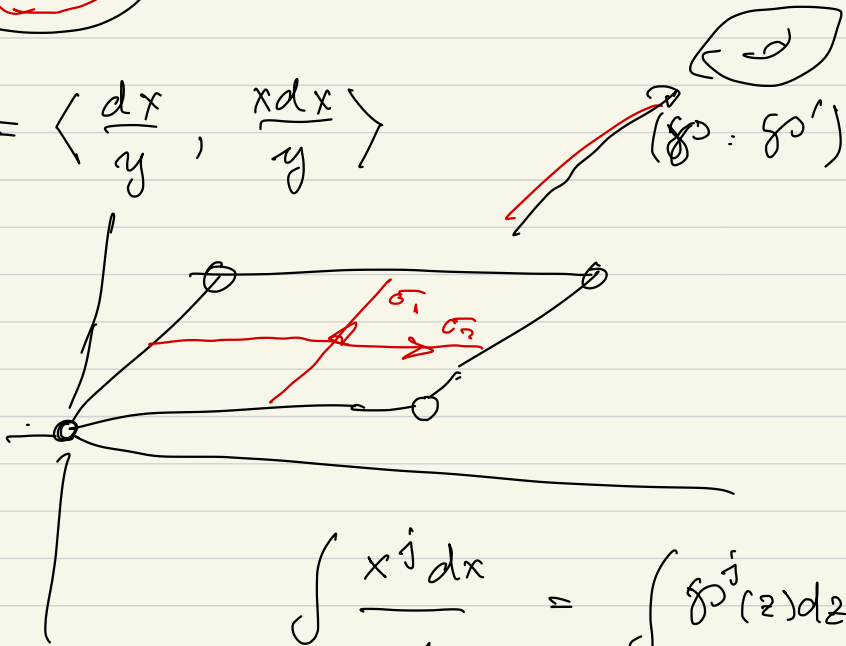 = ⟨ dx/y , xdx/y ⟩
(℘ : ℘')
σ₁
σ₂
∫ x^j dx = ∫ ℘^j(z)dz